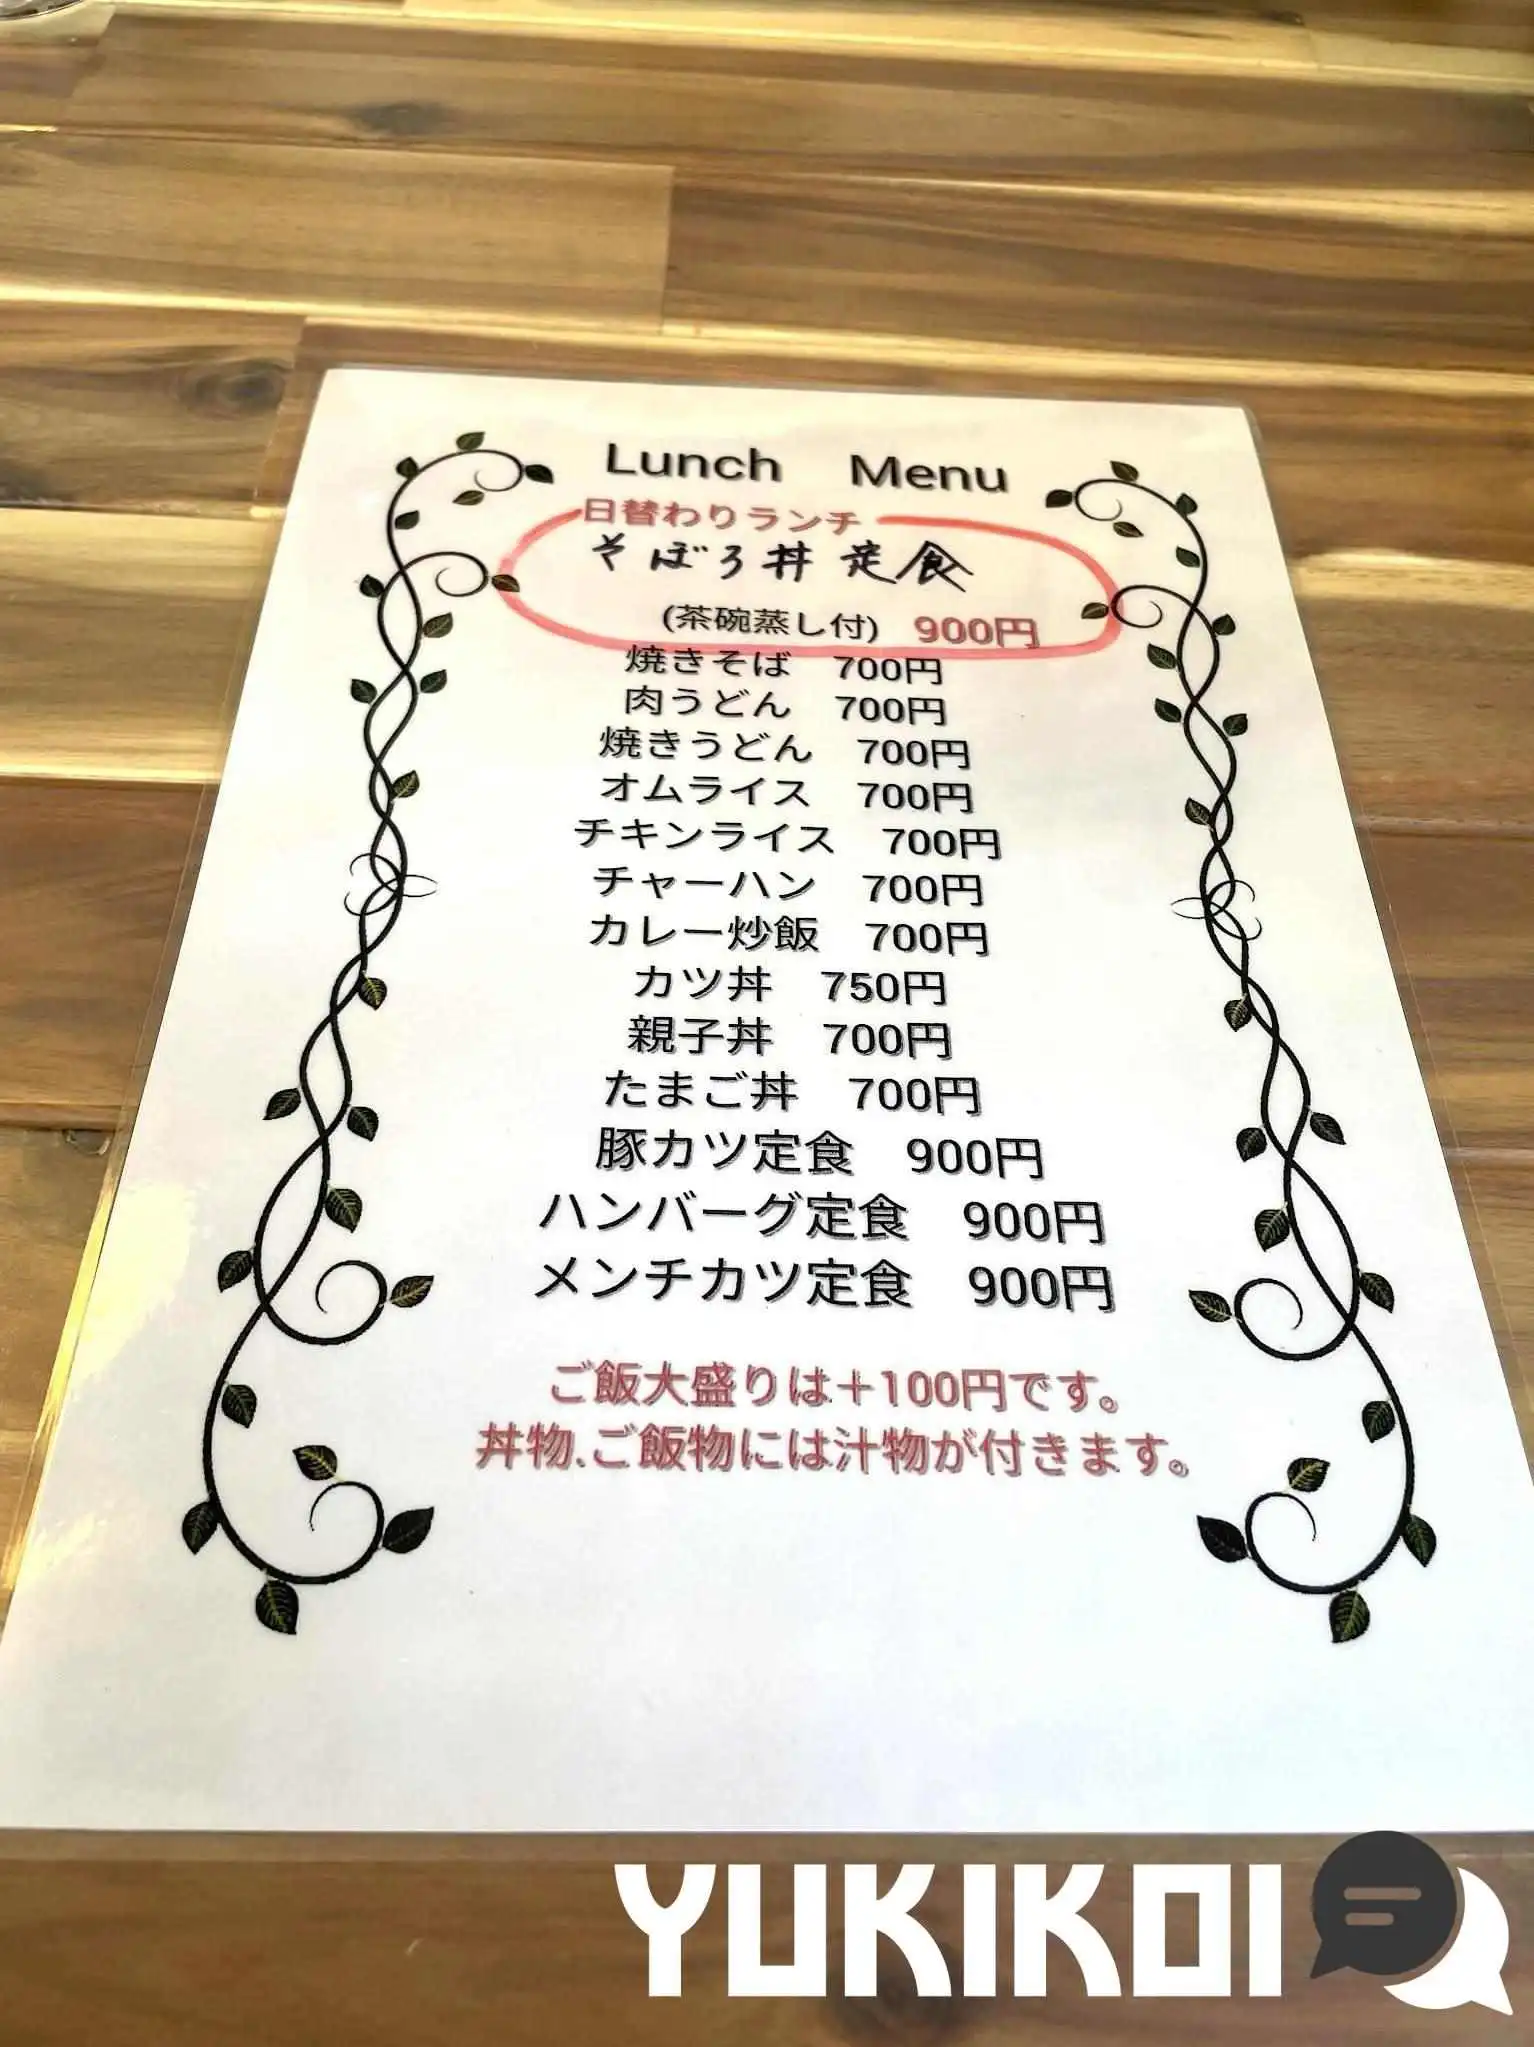 Lunch Menu
日替わりランチ
そぼろ丼 定食
(茶碗蒸し付) 900円
焼きそば 700円
肉うどん 700円
焼きうどん 700円
オムライス 700円
チキンライス 700円
チャーハン 700円
カレー炒飯 700円
カツ丼 750円
親子丼 700円
たまご丼 700円
豚カツ定食 900円
ハンバーグ定食 900円
メンチカツ定食 900円
ご飯大盛りは+100円です。
丼物.ご飯物には汁物が付きます。
YUKIKOI